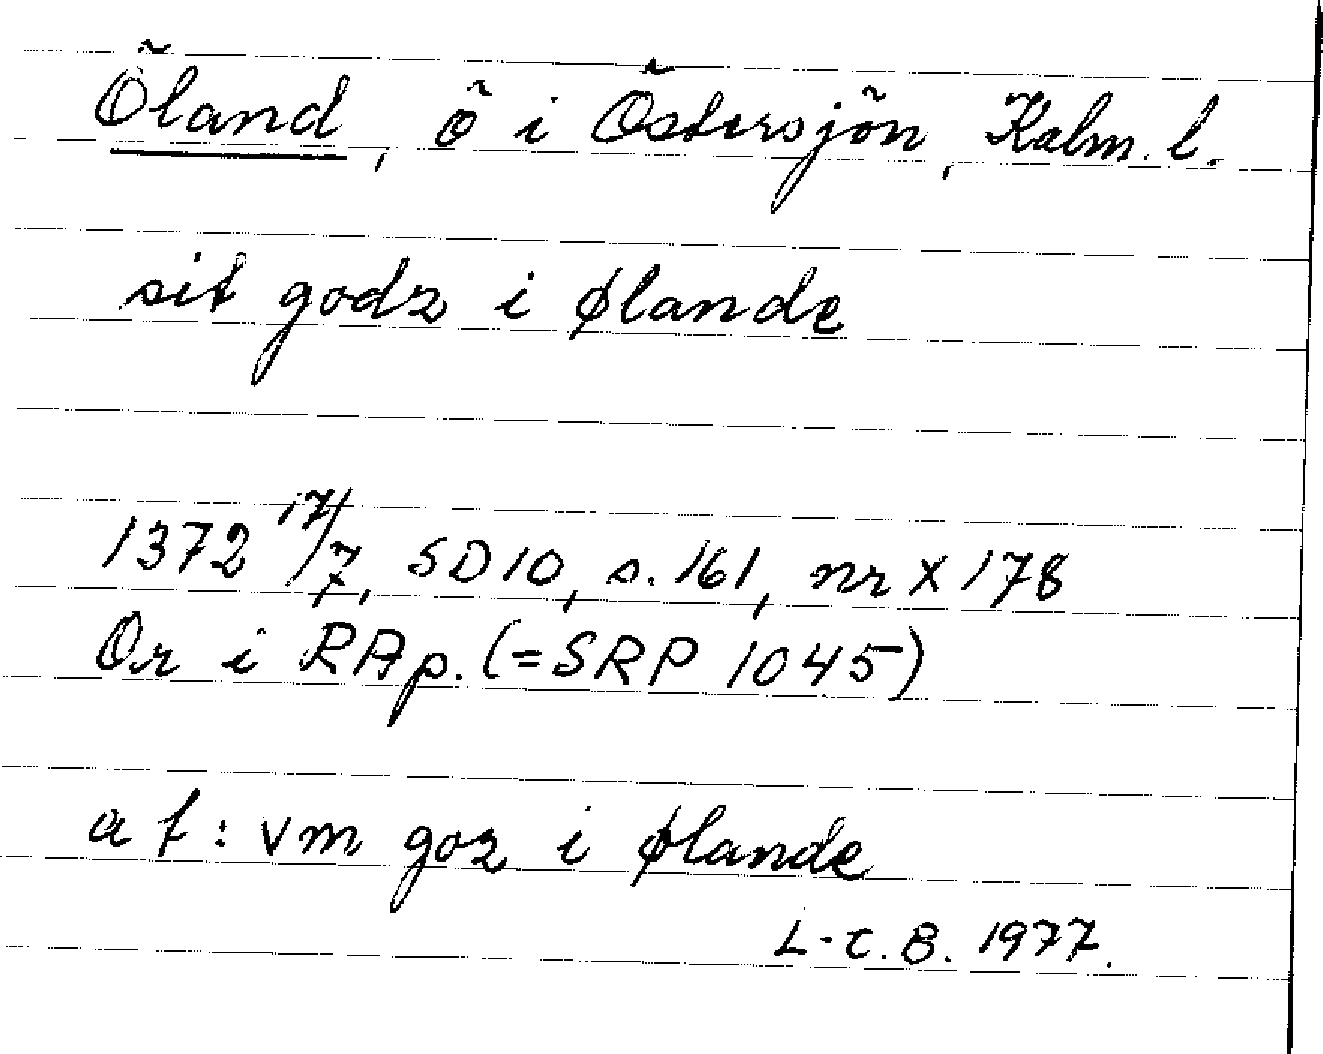 Öland, ö i Östersjön, Kalm. l.
sit godz i ølande
1372 17/7, SD 10, s. 161, nr X 178
Or i RAp. (=SRP 1045)
a t: vm goz i ølande
L-C. B. 1977.